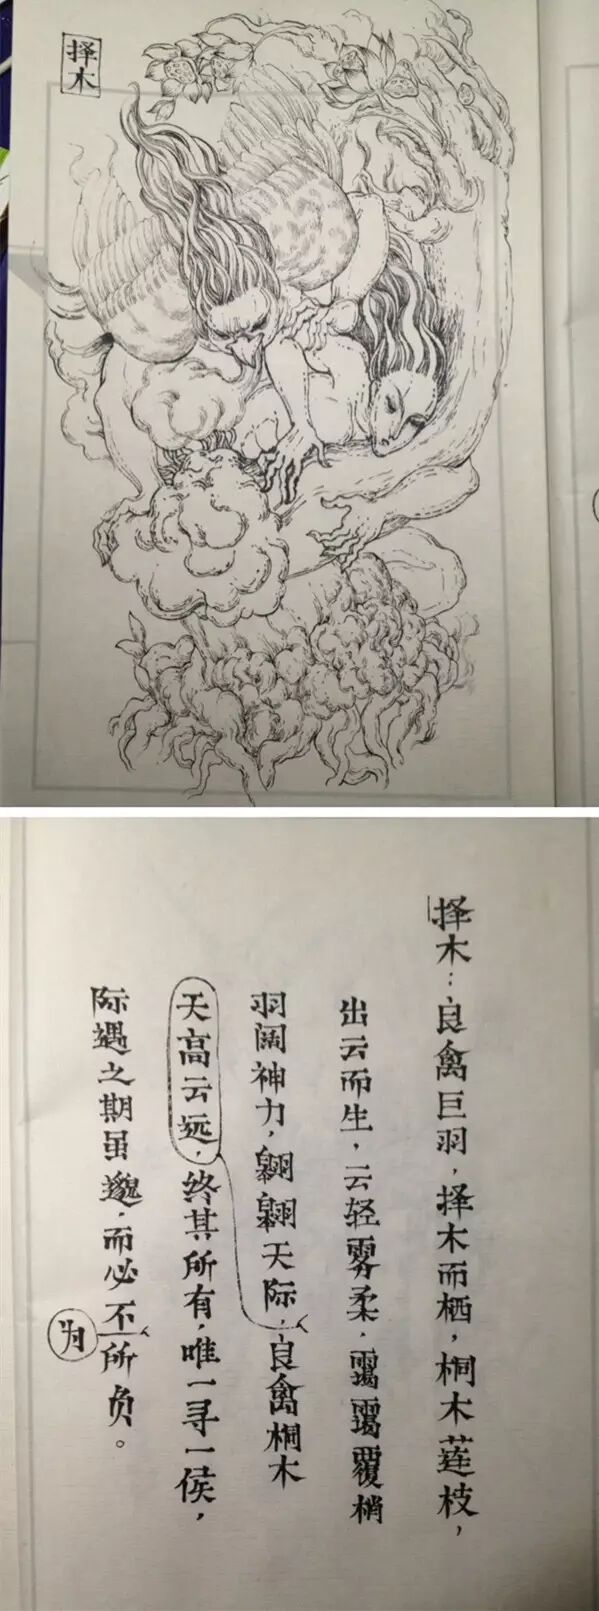 择木
择木：良禽巨羽，择木而栖，桐木莲枝，
出云而生，云轻雾柔，霭霭覆梢
羽阔神力，翱翱天际，良禽桐木
天高云远，终其所有，唯一寻一侯，
际遇之期虽邈，而必不所负。
为